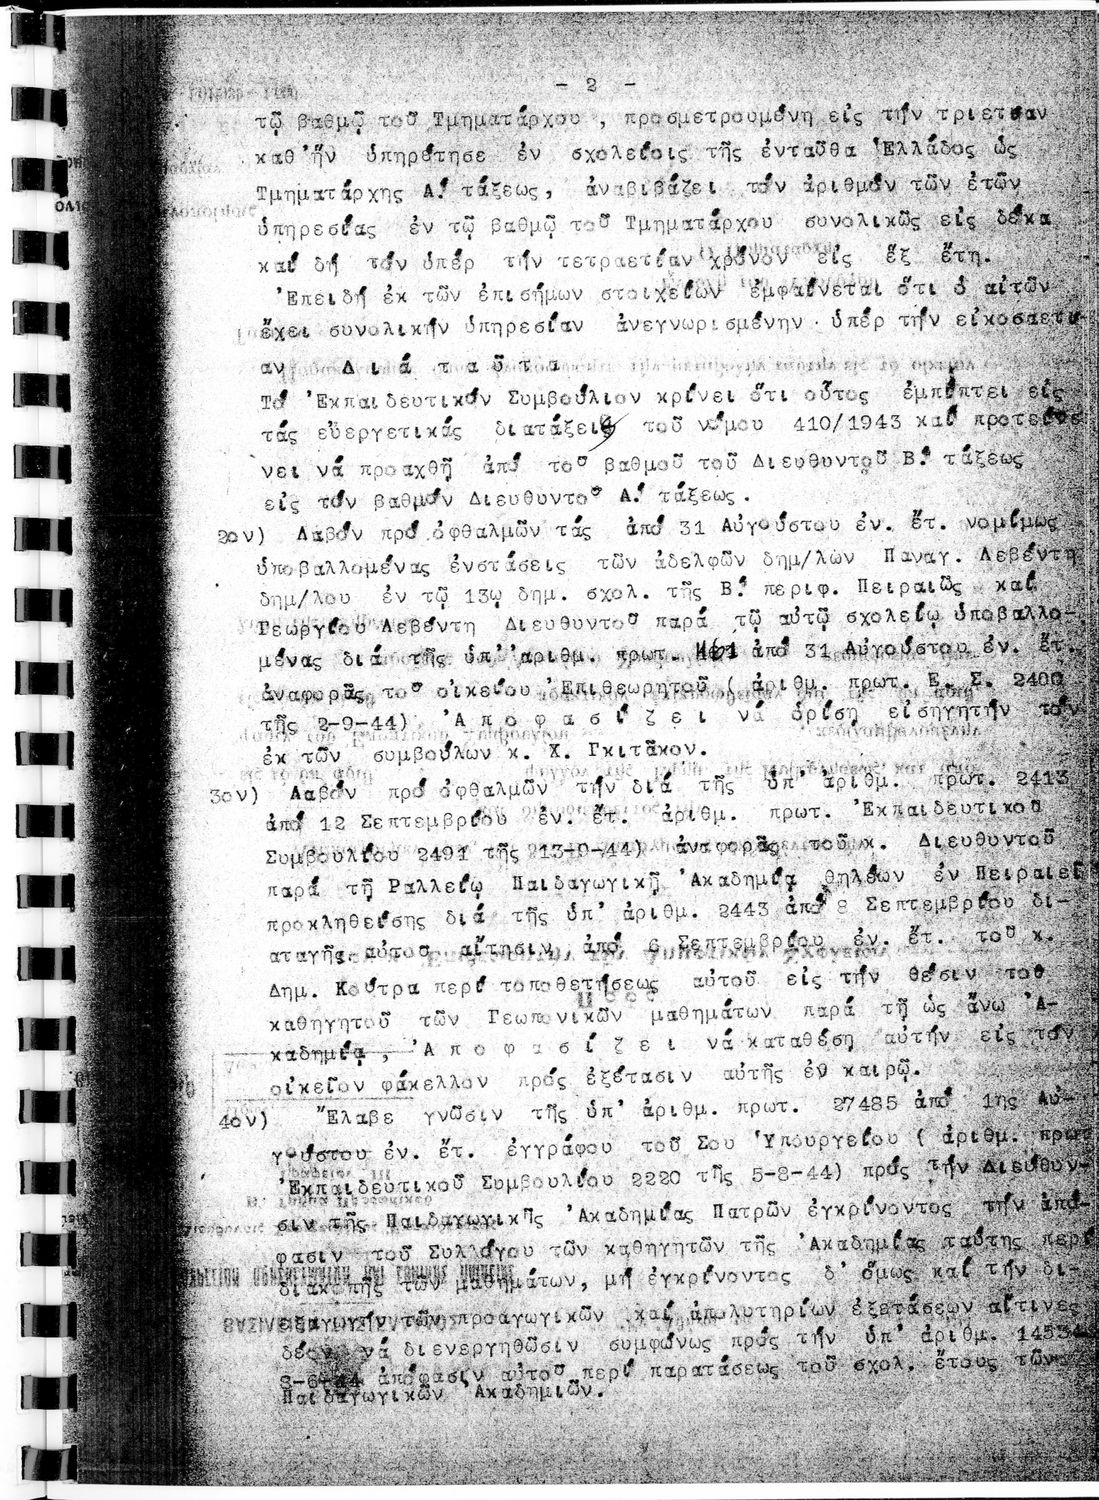 - 2 -
τῷ βαθμῷ τοῦ Τμηματάρχου , προσμετρουμένη εἰς τήν τριετίαν
καθ'ἥν ὑπηρέτησε ἐν σχολείοις τῆς ἐνταῦθα Ἑλλάδος ὡς
Τμηματάρχης Α! τάξεως, ἀναβιβάζει τόν ἀριθμόν τῶν ἐτῶν
ὑπηρεσίας ἐν τῷ βαθμῷ τοῦ Τμηματάρχου συνολικῶς εἰς δέκα
καί δή τόν ὑπέρ τήν τετραετίαν χρόνον εἰς ἕξ ἔτη.
Ἐπειδή ἐκ τῶν ἐπισήμων στοιχείων ἐμφαίνεται ὅτι ὁ αἰτῶν
ἔχει συνολικήν ὑπηρεσίαν ἀνεγνωρισμένην ὑπέρ τήν εἰκοσαετί-
αν Δ ι ά τ α ῦ τ α
Τό Ἐκπαιδευτικόν Συμβούλιον κρίνει ὅτι οὗτος ἐμπίπτει εἰς
τάς εὐεργετικάς διατάξεις τοῦ νόμου 410/1943 καί προτείνε
νει νά προαχθῇ ἀπό τοῦ βαθμοῦ τοῦ Διευθυντοῦ Β! τάξεως
εἰς τόν βαθμόν Διευθυντοῦ Α! τάξεως.
2ον) Λαβόν πρό ὀφθαλμῶν τάς ἀπό 31 Αὐγούστου ἐν. ἔτ. νομίμως
ὑποβαλλομένας ἐνστάσεις τῶν ἀδελφῶν δημ/λων Παναγ. Λεβέντη
δημ/λου ἐν τῷ 13ῳ δημ. σχολ. τῆς Β! περιφ. Πειραιῶς καί
Γεωργίου Λεβέντη Διευθυντοῦ παρά τῷ αὐτῷ σχολείῳ ὑποβαλλο-
μένας διά τῆς ὑπ' ἀριθμ. πρωτ. ἀπό 31 Αὐγούστου ἐν. ἔτ.
ἀναφορᾶς τοῦ οἰκείου Ἐπιθεωρητοῦ ( ἀριθμ. πρωτ. Ε. Σ. 2400
τῆς 2-9-44) Ἀ π ο φ α σ ί ζ ε ι νά ὁρίσῃ εἰσηγητήν τόν
ἐκ τῶν συμβούλων κ. Χ. Γκιτᾶκον.
3ον) Λαβόν πρό ὀφθαλμῶν τήν διά τῆς ὑπ' ἀριθμ. πρωτ. 2413
ἀπό 12 Σεπτεμβρίου ἐν. ἔτ. ἀριθμ. πρωτ. Ἐκπαιδευτικοῦ
Συμβουλίου 2491 τῆς 13-9-44) ἀναφορᾶς τοῦ κ. Διευθυντοῦ
παρά τῇ Ραλλείῳ Παιδαγωγικῇ Ἀκαδημίᾳ θηλέων ἐν Πειραιεῖ
προκληθείσης διά τῆς ὑπ' ἀριθμ. 2443 ἀπό 8 Σεπτεμβρίου δι-
αταγῆς αὐτοῦ αἴτησιν ἀπό 6 Σεπτεμβρίου ἐν. ἔτ. τοῦ κ.
Δημ. Κούτρα περί τοποθετήσεως αὐτοῦ εἰς τήν θέσιν τοῦ
καθηγητοῦ τῶν Γεωπονικῶν μαθημάτων παρά τῇ ὡς ἄνω Ἀ-
καδημίᾳ, Ἀ π ο φ α σ ί ζ ε ι νά καταθέσῃ αὐτήν εἰς τόν
οἰκεῖον φάκελλον πρός ἐξέτασιν αὐτῆς ἐν καιρῷ.
4ον) Ἔλαβε γνῶσιν τῆς ὑπ' ἀριθμ. πρωτ. 27485 ἀπό 1ης Αὐ-
γούστου ἐν. ἔτ. ἐγγράφου τοῦ Σου Ὑπουργείου ( ἀριθμ. πρωτ
Ἐκπαιδευτικοῦ Συμβουλίου 2220 τῆς 5-8-44) πρός τήν Διεύθυν-
σιν τῆς Παιδαγωγικῆς Ἀκαδημίας Πατρῶν ἐγκρίνοντος τήν ἀπό-
φασιν τοῦ Συλλόγου τῶν καθηγητῶν τῆς Ἀκαδημίας ταύτης περί
διακοπῆς τῶν μαθημάτων, μή ἐγκρίνοντος δ' ὅμως καί τήν δι-
εξαγωγήν τῶν προαγωγικῶν καί ἀπολυτηρίων ἐξετάσεων αἵτινες
δέον νά διενεργηθῶσιν συμφώνως πρός τήν ὑπ' ἀριθμ. 1453
3-6-44 ἀπόφασιν αὐτοῦ περί παρατάσεως τοῦ σχολ. ἔτους τῶν
Παιδαγωγικῶν Ἀκαδημιῶν.